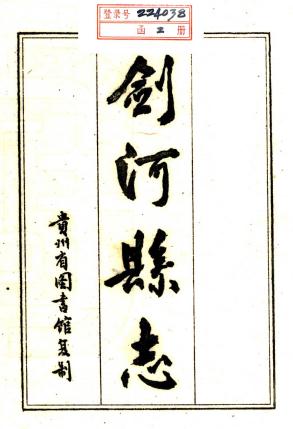 登录号 224038
函 2 册
剑河縣志
貴州省图書馆复制